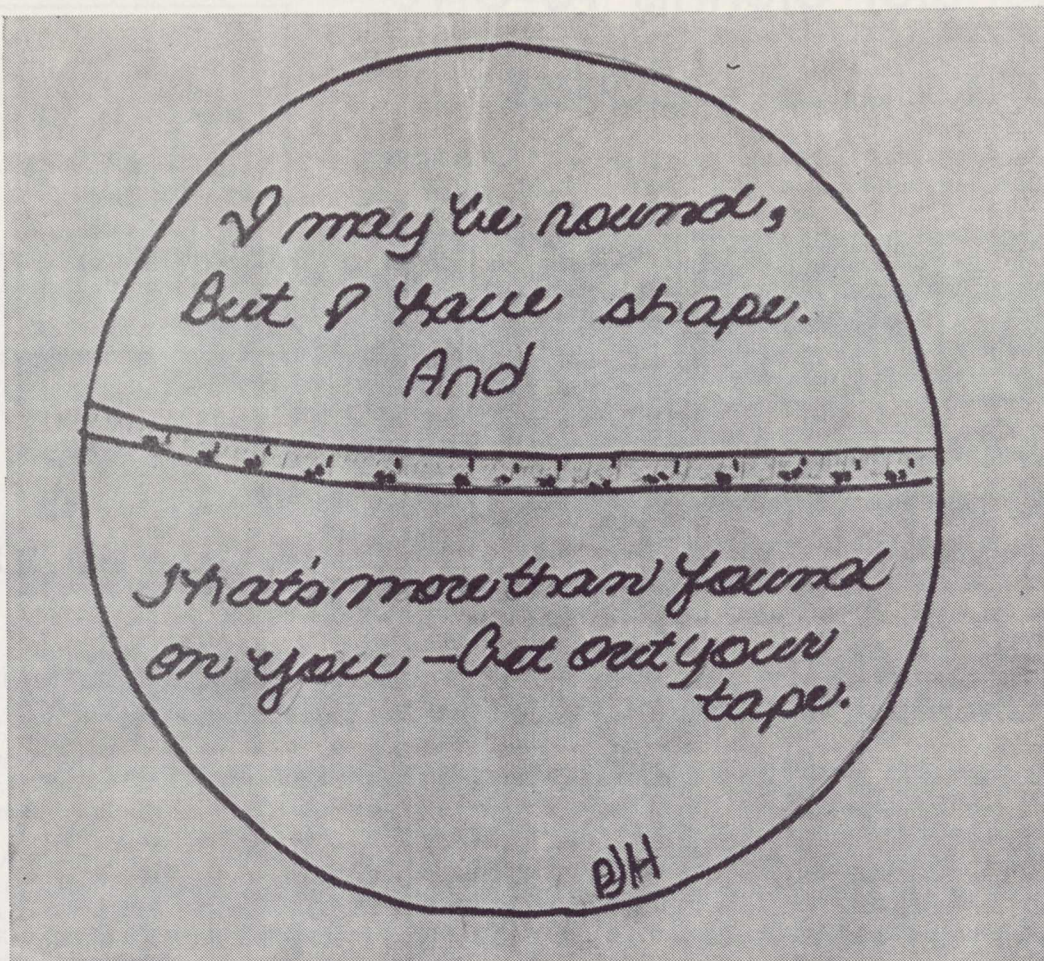 I may be round,
But I have shape.
And
That's more than found
on you — Get out your
tape.
BJH